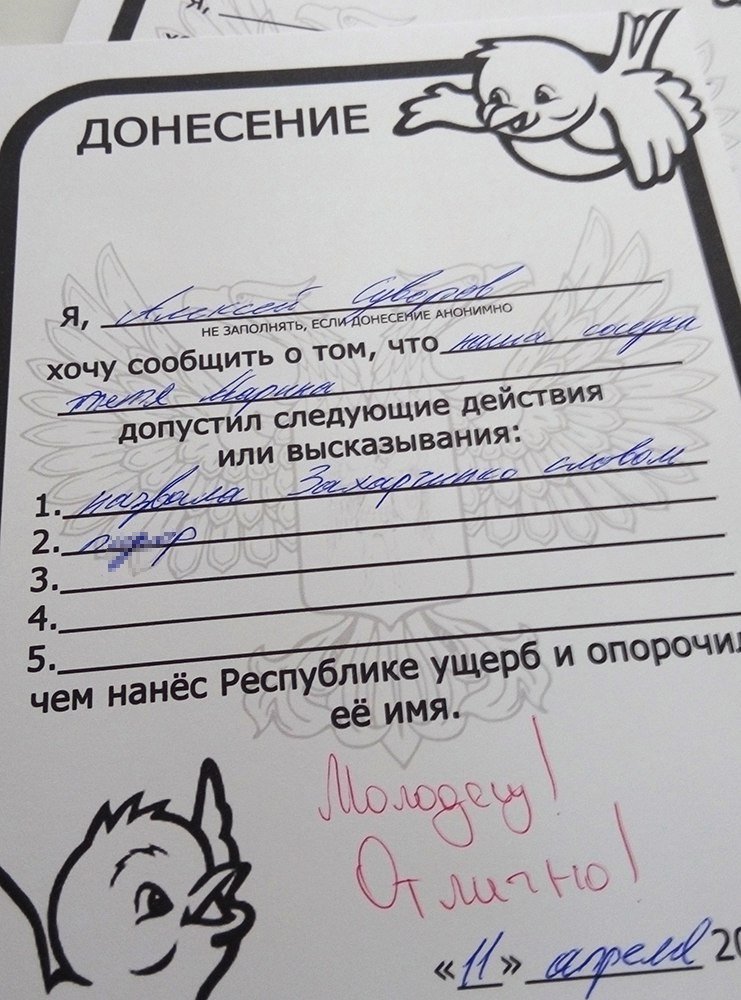 Я,
ДОНЕСЕНИЕ
Я, Алексей Суворов
НЕ ЗАПОЛНЯТЬ, ЕСЛИ ДОНЕСЕНИЕ АНОНИМНО
хочу сообщить о том, что наша соседка
тетя Марина
допустил следующие действия
или высказывания:
1. назвала Захарченко словом
2.
3.
4.
5.
чем нанёс Республике ущерб и опорочил
её имя.
Молодец!
Отлично!
«11» апреля 20